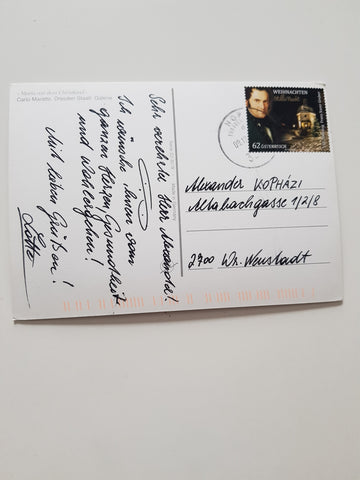 "Maria mit dem Christkind"
Carlo Maratta, Dresden Staatl. Galerie
Sehr verehrter Herr Alexander!
Ich wünsche Ihnen vom
ganzen Herzen Gesundheit
und Wohlergehen!
Mit lieben Grüßen!
WEIHNACHTEN
Stille Nacht
62 ÖSTERREICH
Alexander KOPHÁZI
Mlabachgasse 1/2/8
2700 Wr. Neustadt